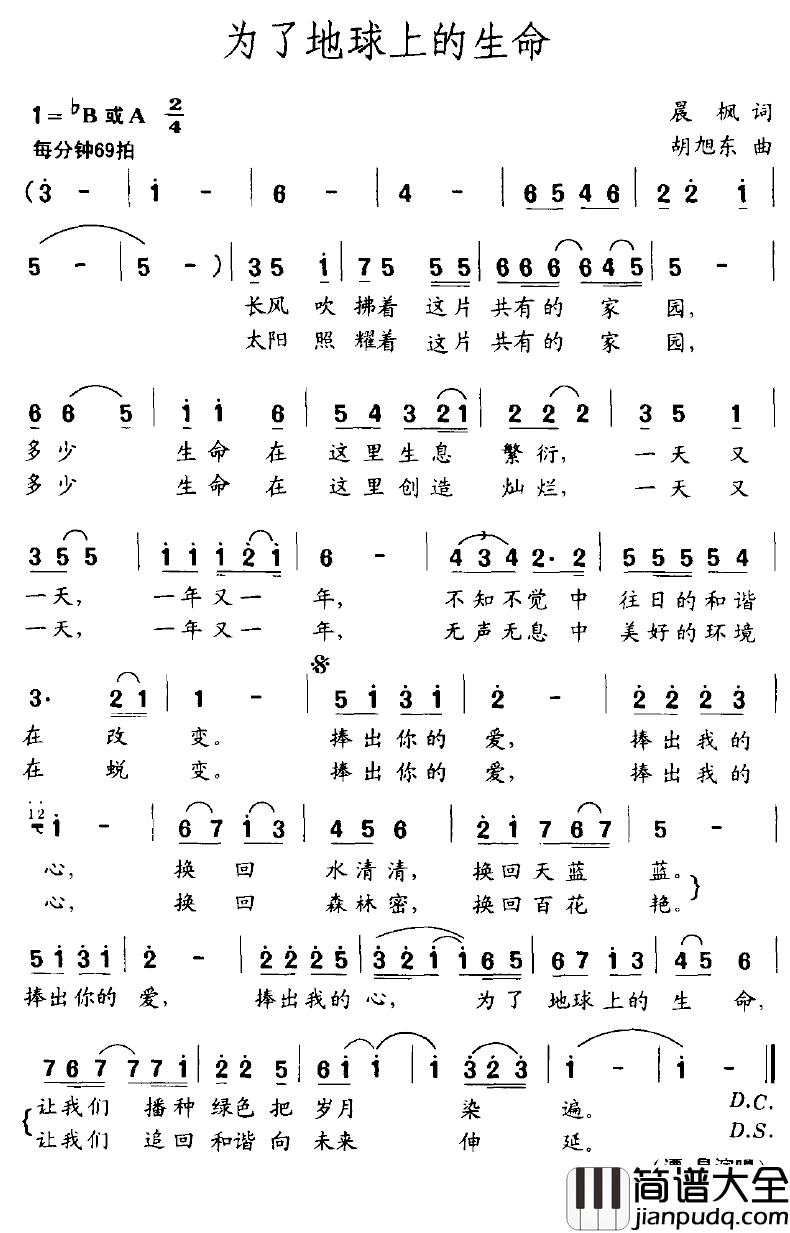 为了地球上的生命
1=♭B或A 2/4
晨枫词
每分钟69拍
胡旭东 曲
(3 - | 1 - | 6 - | 4 - | 6546 | 2 2 1 |
5 - | 5 - ) | 35 1 | 75 55 | 666 645 | 5 - |
长风 吹 拂着 这片 共有的 家 园,
太阳 照 耀着 这片 共有的 家 园,
6 6 5 | 1 1 6 | 5 4 3 21 | 222 2 | 35 1 |
多少 生命 在 这里生息 繁衍, 一天 又
多少 生命 在 这里创造 灿烂, 一天 又
355 | 11121 | 6 - | 434 2· 2 | 55554 |
一天, 一年又一 年, 不知不觉 中 往日的和谐
一天, 一年又一 年, 无声无息 中 美好的环境
3· 21 | 1 - | 5131 | 2 - | 2223 |
在 改 变。 捧出你的 爱, 捧出我的
在 蜕 变。 捧出你的 爱, 捧出我的
12 1 - | 67 13 | 45 6 | 21 767 | 5 - |
心, 换 回 水清清, 换回天蓝 蓝。
心, 换 回 森林密, 换回百花 艳。
5131 | 2 - | 2225 | 321 165 | 67 13 | 45 6 |
捧出你的 爱, 捧出我的 心, 为了 地球上的 生 命,
767 771 | 22 5 | 61 1 | 1 323 | 1 - | 1 - ‖
让我们 播种 绿色 把 岁月 染 遍。 D.C.
让我们 追回 和谐 向 未来 伸 延。 D.S.
简谱大全
jianpudq.com